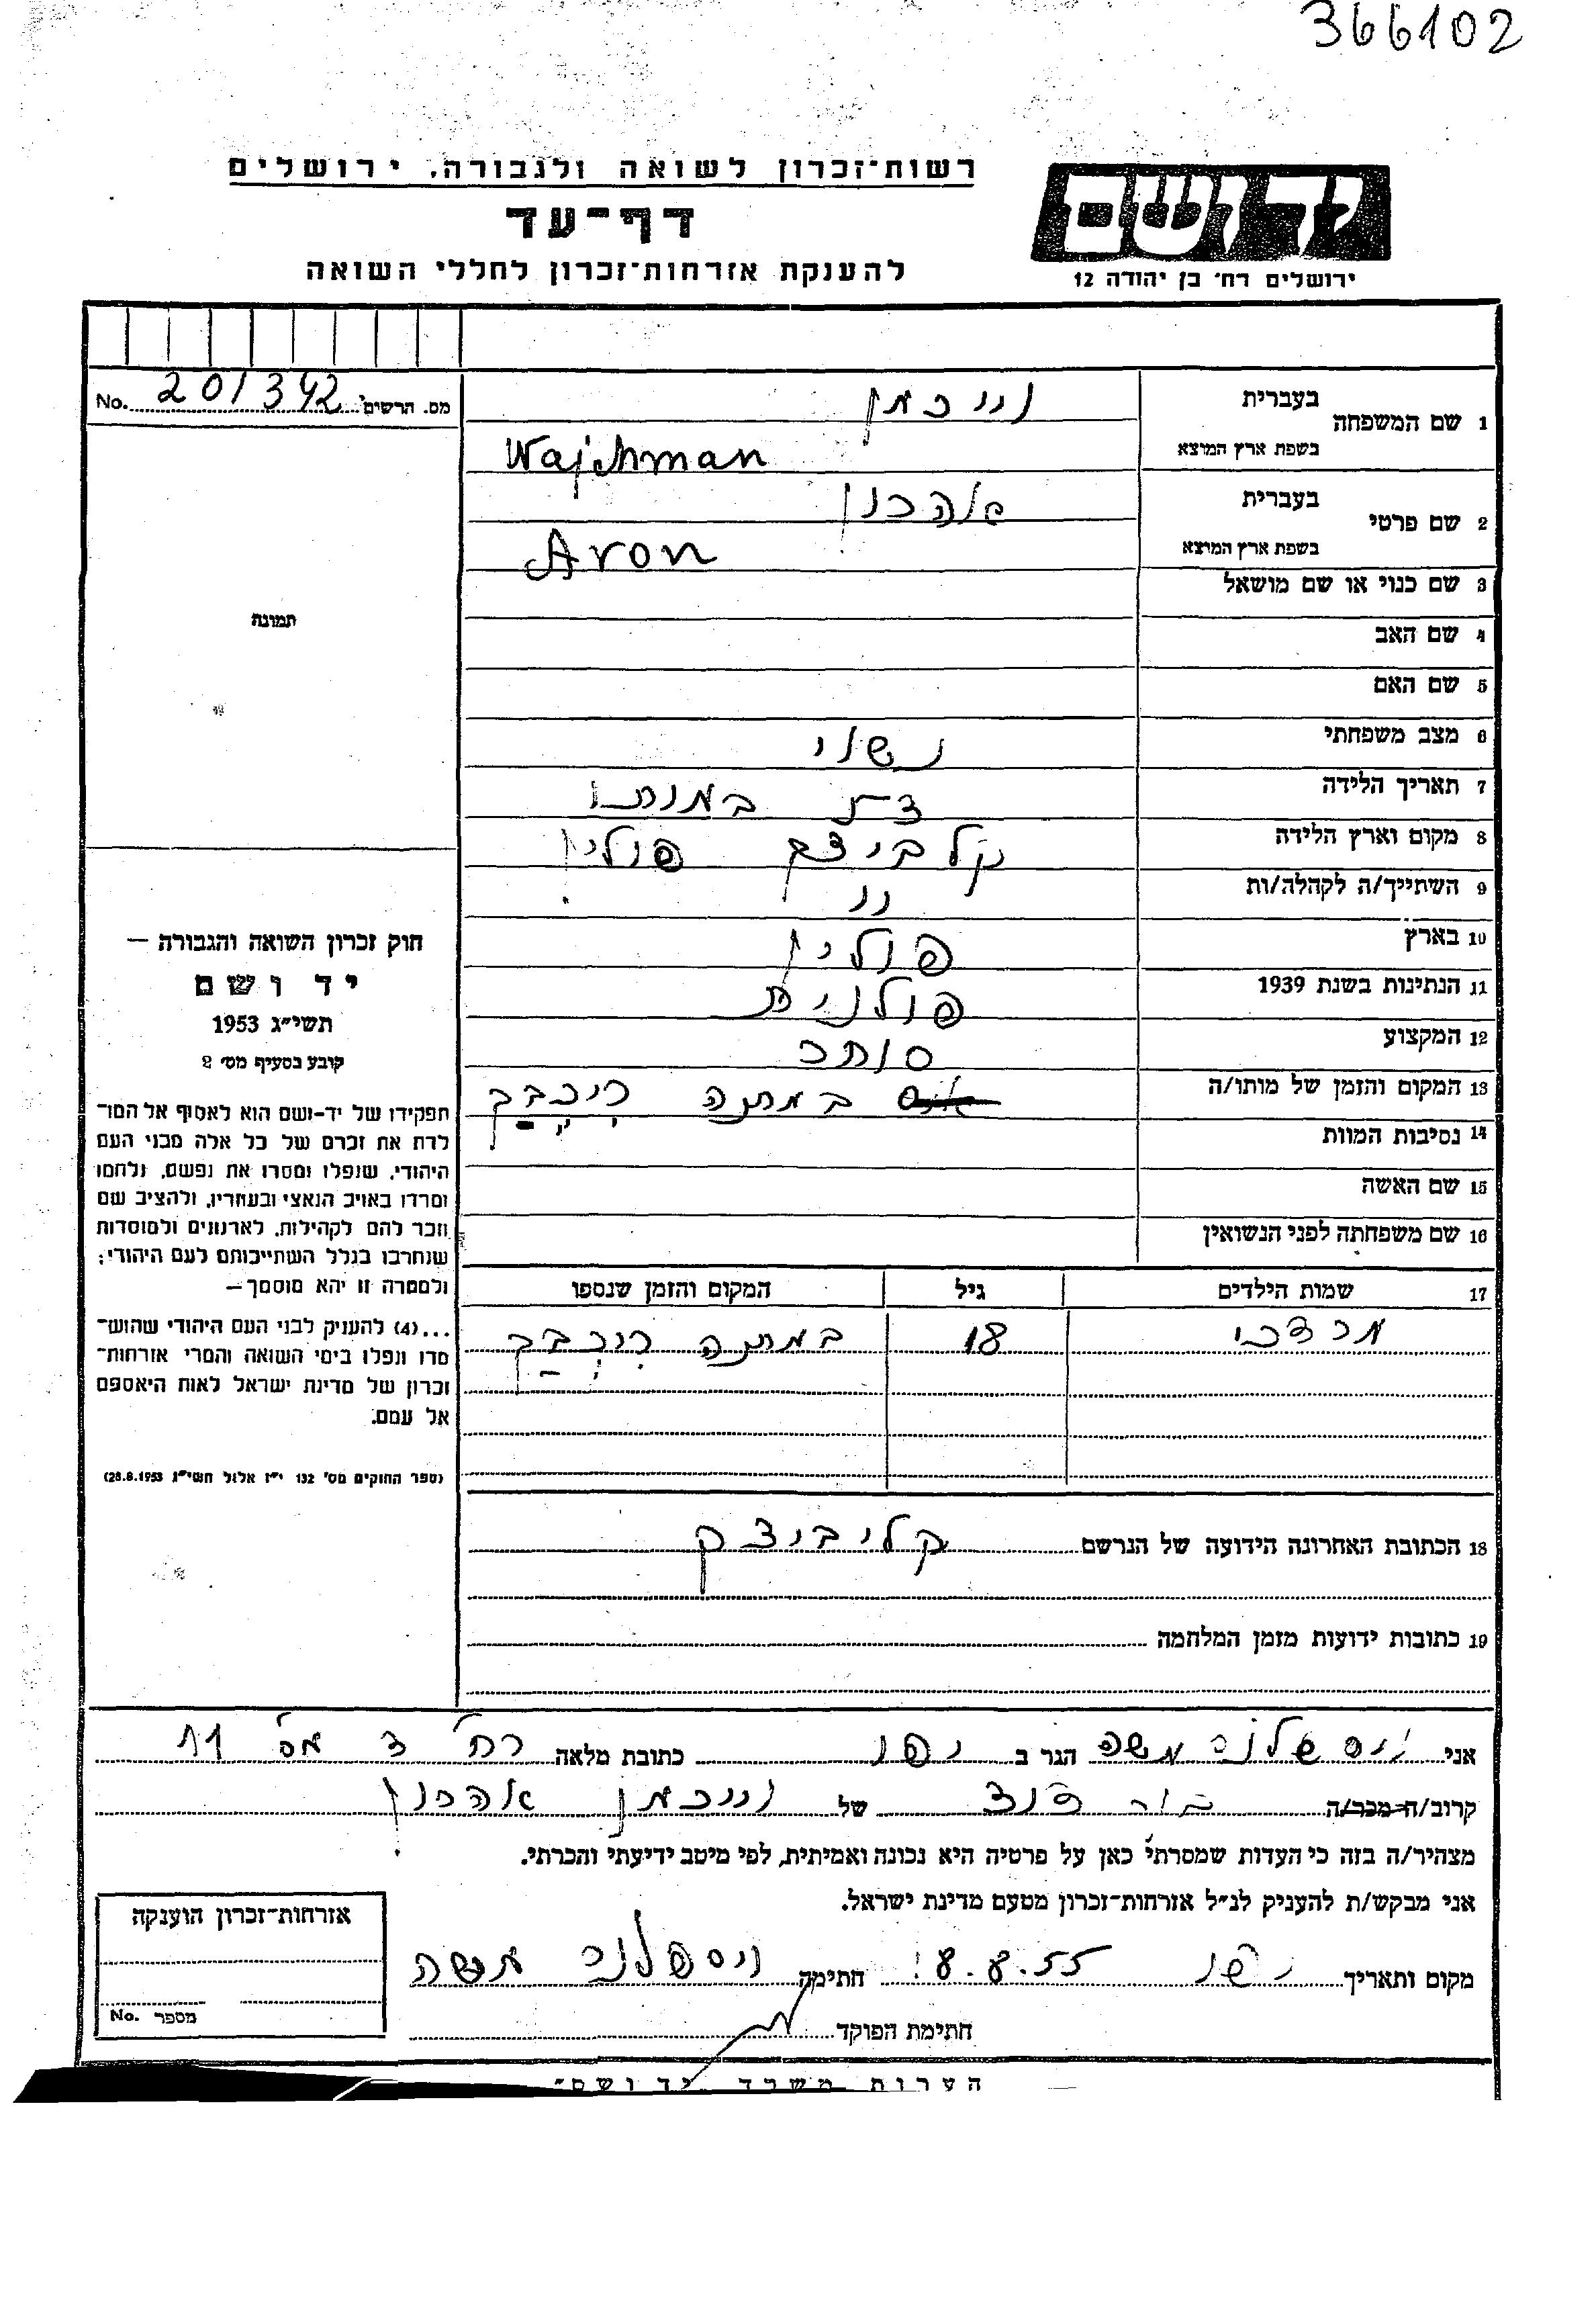 366102
רשות־זכרון לשואה ולגבורה, ירושלים
דף־עד
להענקת אזרחות־זכרון לחללי השואה
יד ושם
ירושלים רח' בן יהודה 12
No. 201342 מס. הרשים
1 שם המשפחה בעברית וייכמן
בשפת ארץ המוצא Wajchman
2 שם פרטי בעברית אהרון
בשפת ארץ המוצא Aron
3 שם כנוי או שם מושאל
4 שם האב
5 שם האם
6 מצב משפחתי נשוי
7 תאריך הלידה
8 מקום וארץ הלידה פולין
9 השתייך/ה לקהלה/ות ״
10 בארץ פולין
11 הנתינות בשנת 1939 פולנית
12 המקצוע סוחר
13 המקום והזמן של מותו/ה במחנה
14 נסיבות המוות
15 שם האשה
16 שם משפחתה לפני הנשואין
17 שמות הילדים גיל המקום והזמן שנספו
מרדכי 18 במחנה
18 הכתובת האחרונה הידועה של הנרשם
19 כתובות ידועות מזמן המלחמה
תמונה
חוק זכרון השואה והגבורה —
יד ושם
תשי״ג 1953
קובע בסעיף מס' 2
תפקידו של יד-ושם הוא לאסוף אל המו־
לדת את זכרם של כל אלה מבני העם
היהודי, שנפלו ומסרו את נפשם, נלחמו
ומרדו באויב הנאצי ובעוזריו, ולהציב שם
וזכר להם לקהילות, לארגונים ולמוסדות
שנחרבו בגלל השתייכותם לעם היהודי;
ולמטרה זו יהא מוסמך —
...(4) להעניק לבני העם היהודי שהוש־
מדו ונפלו בימי השואה והמרי אזרחות־
זכרון של מדינת ישראל לאות היאספם
אל עמם.
(ספר החוקים מס' 132 י״ז אלול תשי״ג 28.8.1953)
אני משה הגר ב יפו כתובת מלאה רח' ד מס' 11
קרוב/ה מכר/ה בן דוד של וייכמן אהרון
מצהיר/ה בזה כי העדות שמסרתי כאן על פרטיה היא נכונה ואמיתית, לפי מיטב ידיעתי והכרתי.
אני מבקש/ת להעניק לנ״ל אזרחות־זכרון מטעם מדינת ישראל.
מקום ותאריך יפו 8.8.55 חתימה משה
חתימת הפוקד
אזרחות־זכרון הוענקה
מספר No.
הערות משרד יד ושם״